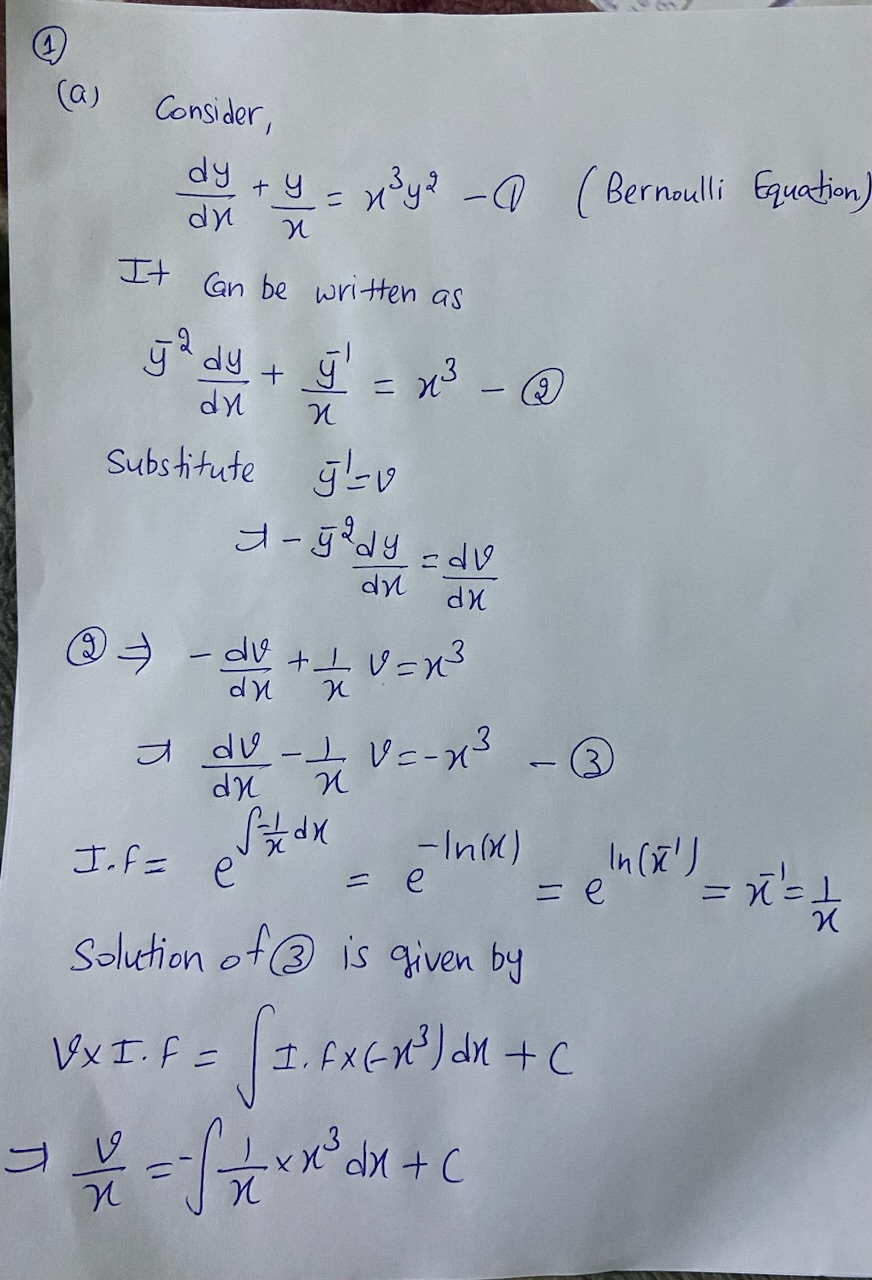 ①
(a) Consider,
dy/dx + y/x = x³y² - ① (Bernoulli Equation)
It Can be written as
y⁻² dy/dx + y⁻¹/x = x³ - ②
Substitute y⁻¹ = v
⇒ - y⁻² dy/dx = dv/dx
② ⇒ - dv/dx + 1/x v = x³
⇒ dv/dx - 1/x v = - x³ - ③
I.f = e^(∫-1/x dx) = e^(-ln(x)) = e^(ln(x⁻¹)) = x⁻¹ = 1/x
Solution of ③ is given by
v × I.f = ∫ I.f × (-x³) dx + C
⇒ v/x = -∫ 1/x × x³ dx + C